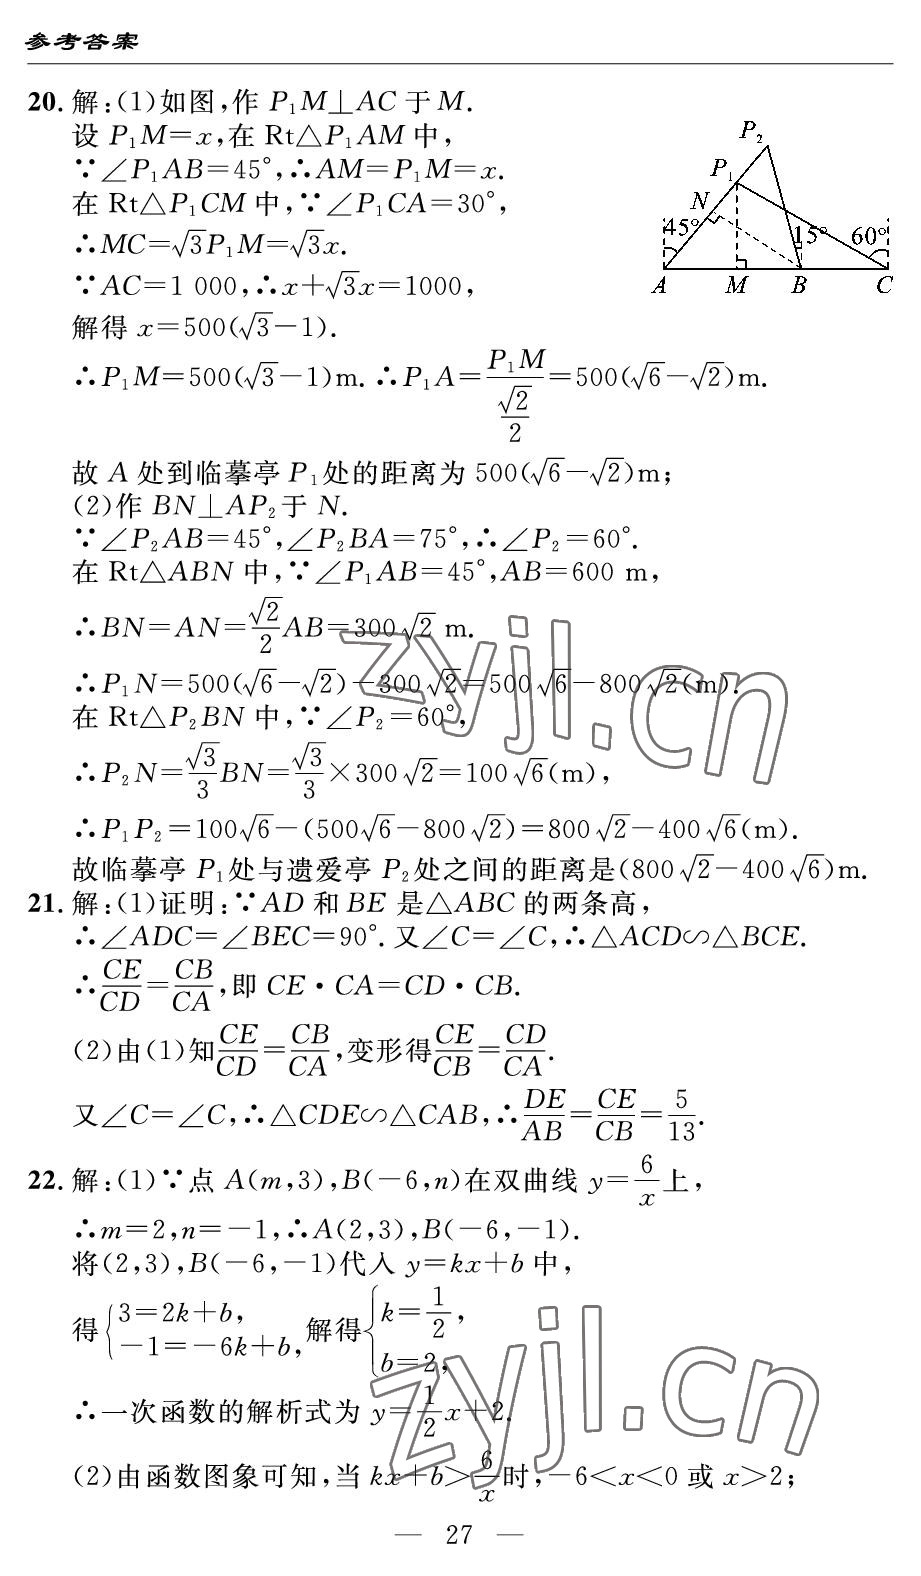 参考答案
20. 解:(1)如图,作 P₁M⊥AC 于 M.
设 P₁M=x,在 Rt△P₁AM 中,
∵∠P₁AB=45°,∴AM=P₁M=x.
在 Rt△P₁CM 中,∵∠P₁CA=30°,
∴MC=√3P₁M=√3x.
∵AC=1 000,∴x+√3x=1000,
解得 x=500(√3-1).
∴P₁M=500(√3-1)m.∴P₁A=P₁M/(√2/2)=500(√6-√2)m.
P₂
P₁
N
45°
15°
60°
A M B C
故 A 处到临摹亭 P₁处的距离为 500(√6-√2)m;
(2)作 BN⊥AP₂于 N.
∵∠P₂AB=45°,∠P₂BA=75°,∴∠P₂=60°.
在 Rt△ABN 中,∵∠P₁AB=45°,AB=600 m,
∴BN=AN=√2/2AB=300√2 m.
∴P₁N=500(√6-√2)-300√2=500√6-800√2(m).
在 Rt△P₂BN 中,∵∠P₂=60°,
∴P₂N=√3/3BN=√3/3×300√2=100√6(m),
∴P₁P₂=100√6-(500√6-800√2)=800√2-400√6(m).
故临摹亭 P₁处与遗爱亭 P₂处之间的距离是(800√2-400√6)m.
21. 解:(1)证明:∵AD 和 BE 是△ABC 的两条高,
∴∠ADC=∠BEC=90°.又∠C=∠C,∴△ACD∽△BCE.
∴CE/CD=CB/CA,即 CE·CA=CD·CB.
(2)由(1)知CE/CD=CB/CA,变形得CE/CB=CD/CA.
又∠C=∠C,∴△CDE∽△CAB,∴DE/AB=CE/CB=5/13.
22. 解:(1)∵点 A(m,3),B(-6,n)在双曲线 y=6/x上,
∴m=2,n=-1,∴A(2,3),B(-6,-1).
将(2,3),B(-6,-1)代入 y=kx+b 中,
得{3=2k+b, -1=-6k+b,解得{k=1/2, b=2,
∴一次函数的解析式为 y=1/2x+2.
(2)由函数图象可知,当 kx+b>6/x时,-6<x<0 或 x>2;
— 27 —
zyjl.cn
zyjl.cn